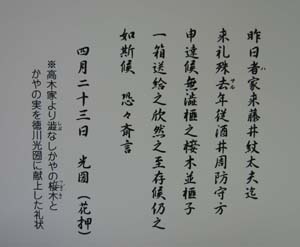 昨日者家来藤井紋太夫迄
来礼殊去年従酒井周防守方
申達候無澁榧之桜木並榧子
一箱送給之欣然之至存候仍之
如斯候　恐々斉言
四月二十三日　光圀（花押）
※高木家より澁なしかやの桜木と
かやの実を徳川光圀に献上した礼状